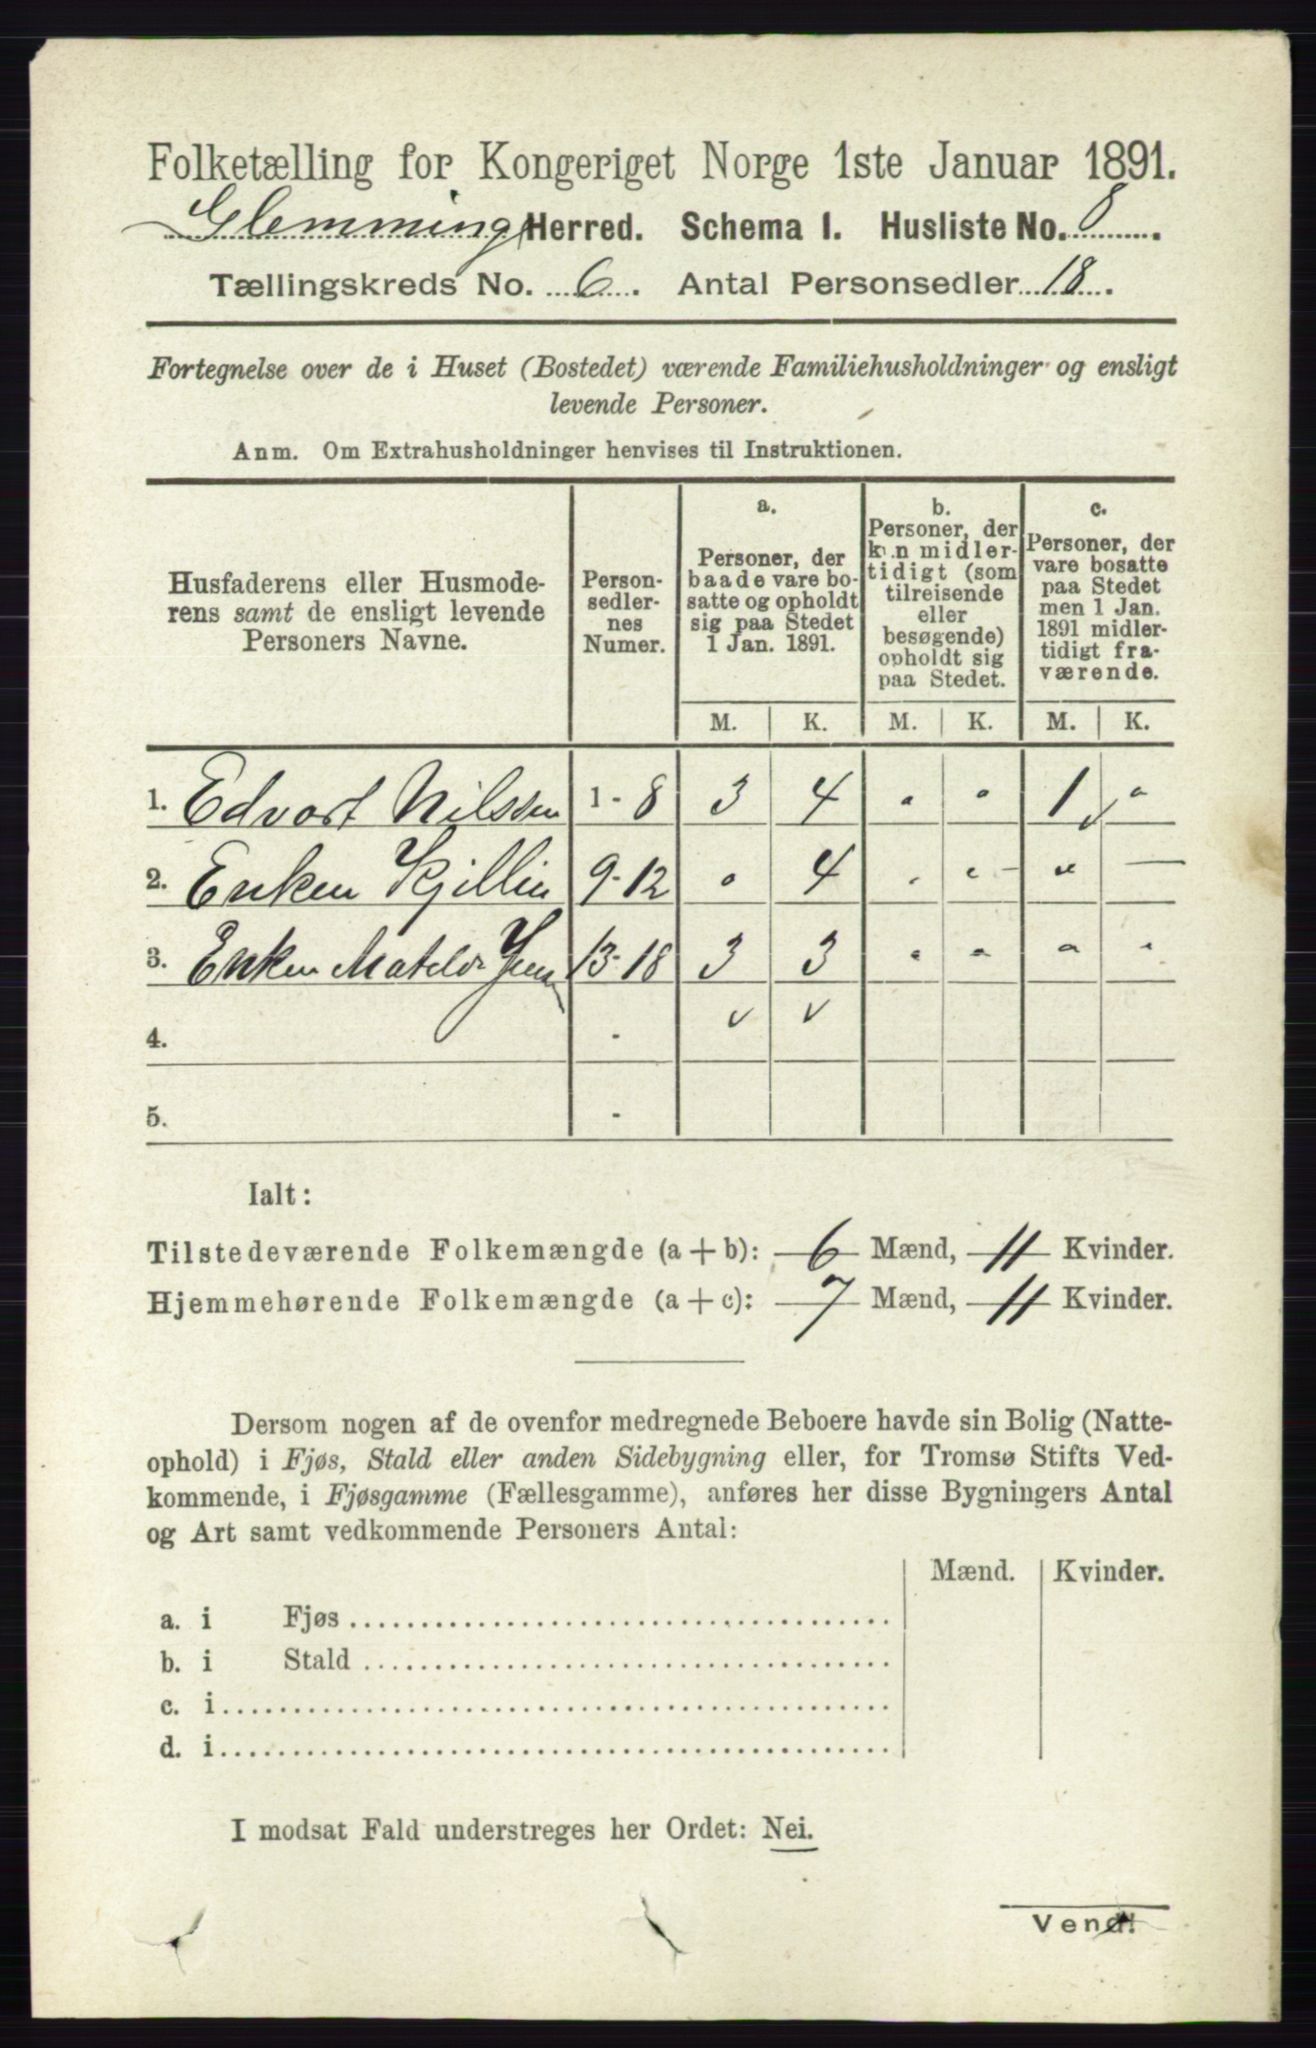 Folketælling for Kongeriget Norge 1ste Januar 1891.
Glemminge Herred. Schema I. Husliste No. 8.
Tællingskreds No. 6. Antal Personsedler 18.
Fortegnelse over de i Huset (Bostedet) værende Familiehusholdninger og ensligt
levende Personer.
Anm. Om Extrahusholdninger henvises til Instruktionen.
Husfaderens eller Husmode-
rens samt de ensligt levende
Personers Navne.
Person-
sedler-
nes
Numer.
a.
Personer, der
baade vare bo-
satte og opholdt
sig paa Stedet
1 Jan. 1891.
b.
Personer, der
kun midler-
tidigt (som
tilreisende
eller
besøgende)
opholdt sig
paa Stedet.
c.
Personer, der
vare bosatte
paa Stedet
men 1 Jan.
1891 midler-
tidigt fra-
værende.
M. K. M. K. M. K.
1. Edvart Nilssen 1-8 3 4 " " 1 "
2. Enken Kjillin 9-12 " 4 " " " —
3. Enken Matilde 13-18 3 3 " " " "
4. -
5. -
Ialt:
Tilstedeværende Folkemængde (a+b): 6 Mænd, 11 Kvinder.
Hjemmehørende Folkemængde (a+c): 7 Mænd, 11 Kvinder.
Dersom nogen af de ovenfor medregnede Beboere havde sin Bolig (Natte-
ophold) i Fjøs, Stald eller anden Sidebygning eller, for Tromsø Stifts Ved-
kommende, i Fjøsgamme (Fællesgamme), anføres her disse Bygningers Antal
og Art samt vedkommende Personers Antal:
Mænd. Kvinder.
a. i Fjøs
b. i Stald
c. i
d. i
I modsat Fald understreges her Ordet: Nei.
Vend!